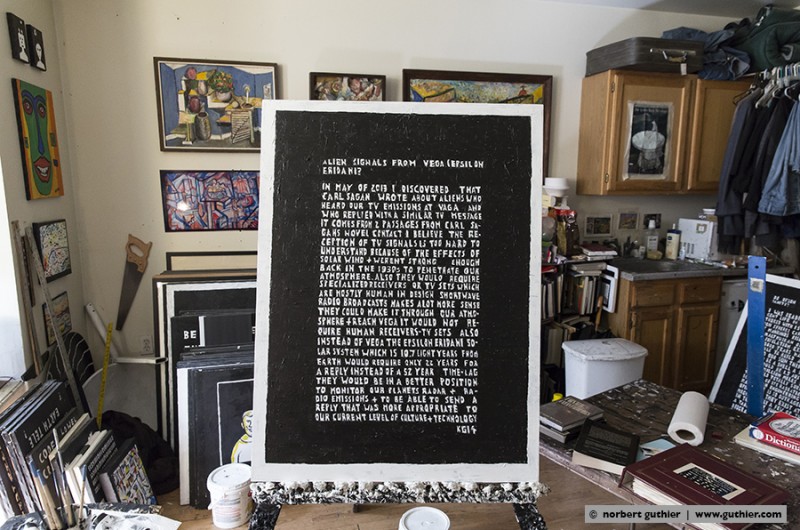 ALIEN SIGNALS FROM VEGA (EPSILON
ERIDANI?
IN MAY OF 2013 I DISCOVERED THAT
CARL SAGAN WROTE ABOUT ALIENS WHO
HEARD OUR TV EMISSIONS AT VAGA AND
WHO REPLIED WITH A SIMILAR TV MESSAGE
IT COMES FROM 2 PASSAGES FROM CARL SA-
GANS NOVEL CONTACT I BELIEVE THE RE-
CEPTION OF TV SIGNALS IS TOO HARD TO
UNDERSTAND BECAUSE OF THE EFFECTS OF
SOLAR WIND + WERENT STRONG ENOUGH
BACK IN THE 1930s TO PENETRATE OUR
ATMOSPHERE. ALSO THEY WOULD REQUIRE
SPECIALIZED RECEIVERS OR TV SETS WHICH
ARE MOSTLY HUMAN IN DESIGN SHORTWAVE
RADIO BROADCASTS MAKES ALOT MORE SENSE
THEY COULD MAKE IT THROUGH OUR ATMO-
SPHERE + REACH VEGA IT WOULD NOT RE-
QUIRE HUMAN RECEIVERS-TV SETS ALSO
INSTEAD OF VEGA THE EPSILON ERIDANI SO-
LAR SYSTEM WHICH IS 10.7 LIGHT YEARS FROM
EARTH WOULD REQUIRE ONLY 22 YEARS FOR
A REPLY INSTEAD OF A 52 YEAR TIME-LAG
THEY WOULD BE IN A BETTER POSITION
TO MONITOR OUR PLANETS RADAR + RA-
DIO EMISSIONS + TO BE ABLE TO SEND A
REPLY THAT WAS MORE APPROPRIATE TO
OUR CURRENT LEVEL OF CULTURE + TECHNOLOGY
KG14
BE
Dictionary
© norbert guthier | www.guthier.com